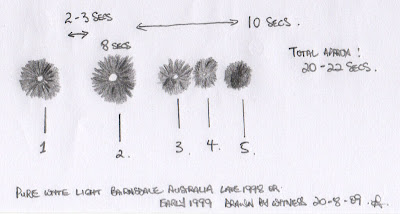 2-3 SECS
10 SECS.
8 SECS
TOTAL APPROX:
20-22 SECS.
1 2. 3. 4. 5.
PURE WHITE LIGHT BAIRNSDALE AUSTRALIA LATE 1998 OR
EARLY 1999 DRAWN BY WITNESS 20-8-09.